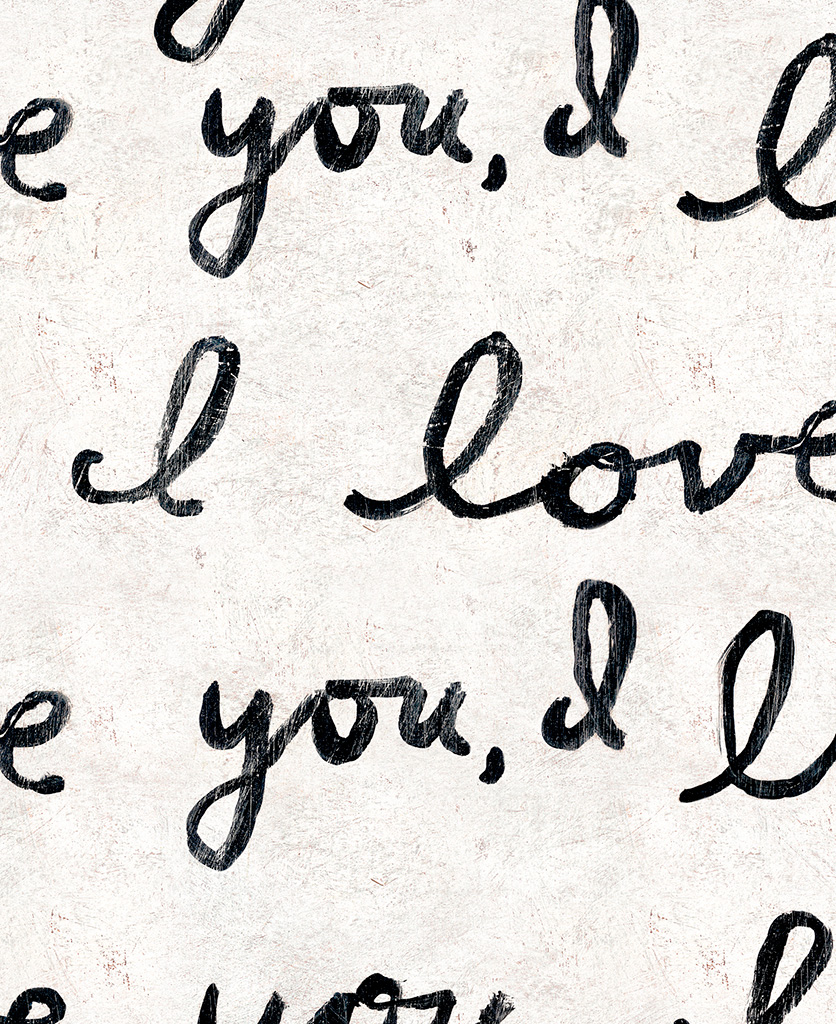 e you, I l
I love
e you, I l
e you